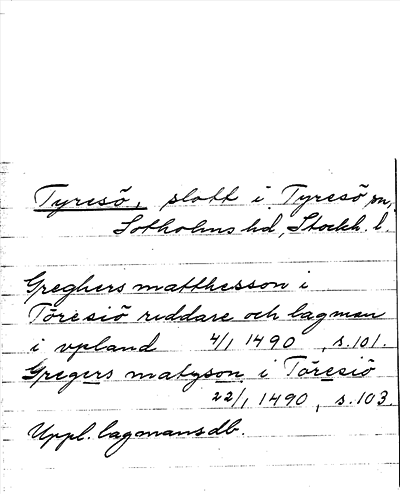 Tyresö, slott i Tyresö sn,
Sotholms hd, Stockh. l.
Greghers matthesson i
Töresiö riddare och lagman
i vpland 4/1 1490, s. 101.
Gregers matzson i Töresiö
22/1 1490, s. 103.
Uppl. lagmansdb.